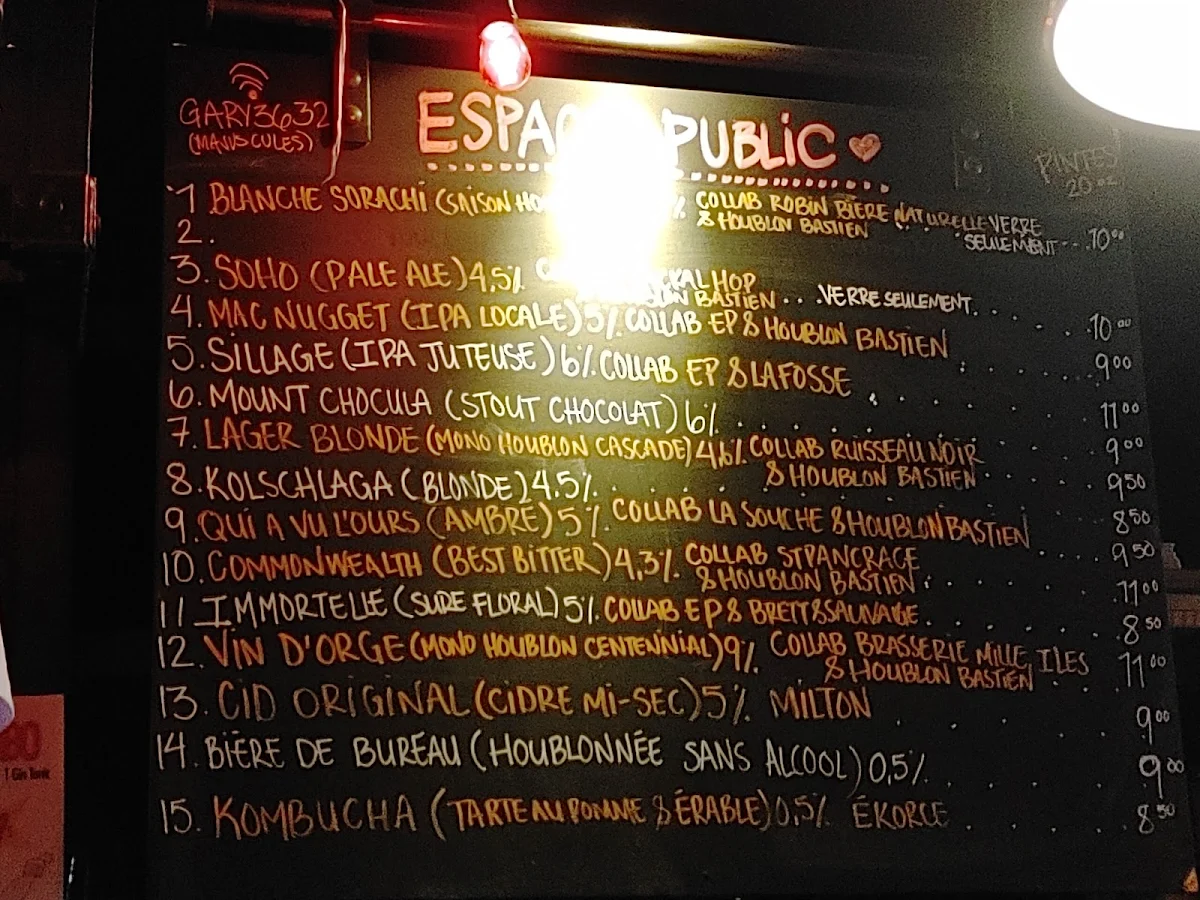 GARY3632
(MAJUSCULES)
ESPA PUBLIC
PINTES
20 oz
1 BLANCHE SORACHI (SAISON % COLLAB ROBIN BIÈRE NATURELLE VERRE
& HOUBLON BASTIEN .. SEULEMENT --- 10⁰⁰
2.
3. SOHO (PALE ALE) 4.5% HOP
BASTIEN ... VERRE SEULEMENT. . . . 10⁰⁰
4. MAC NUGGET (IPA LOCALE) 5% COLLAB EP & HOUBLON BASTIEN . . . . 9⁰⁰
5. SILLAGE (IPA JUTEUSE) 6% COLLAB EP & LAFOSSE . . . . . . 11⁰⁰
6. MOUNT CHOCULA (STOUT CHOCOLAT) 6% . . . . . . . . 9⁰⁰
7. LAGER BLONDE (MONO HOUBLON CASCADE) 4,6% COLLAB RUISSEAU NOIR
& HOUBLON BASTIEN . . . . 9⁵⁰
8. KOLSCHLAGA (BLONDE) 4.5% . . . . . . . . . 8⁵⁰
9. QUI A VU L'OURS (AMBRÉ) 5% COLLAB LA SOUCHE & HOUBLON BASTIEN . . . . 9⁵⁰
10. COMMONWEALTH (BEST BITTER) 4,3% COLLAB ST PANCRACE
& HOUBLON BASTIEN . . . . . 11⁰⁰
11 IMMORTELLE (SURE FLORAL) 5% COLLAB EP & BRETT & SAUVAGE . . . . . . 8⁵⁰
12. VIN D'ORGE (MONO HOUBLON CENTENNIAL) 9% COLLAB BRASSERIE MILLE ILES
& HOUBLON BASTIEN . . 11⁰⁰
13. CID ORIGINAL (CIDRE MI-SEC) 5% MILTON . . . . . . 9⁰⁰
14. BIÈRE DE BUREAU (HOUBLONNÉE SANS ALCOOL) 0,5% . . . . . 9⁰⁰
15. KOMBUCHA (TARTE AU POMME & ÉRABLE) 0,5% ÉKORCE . . . . . 8⁵⁰